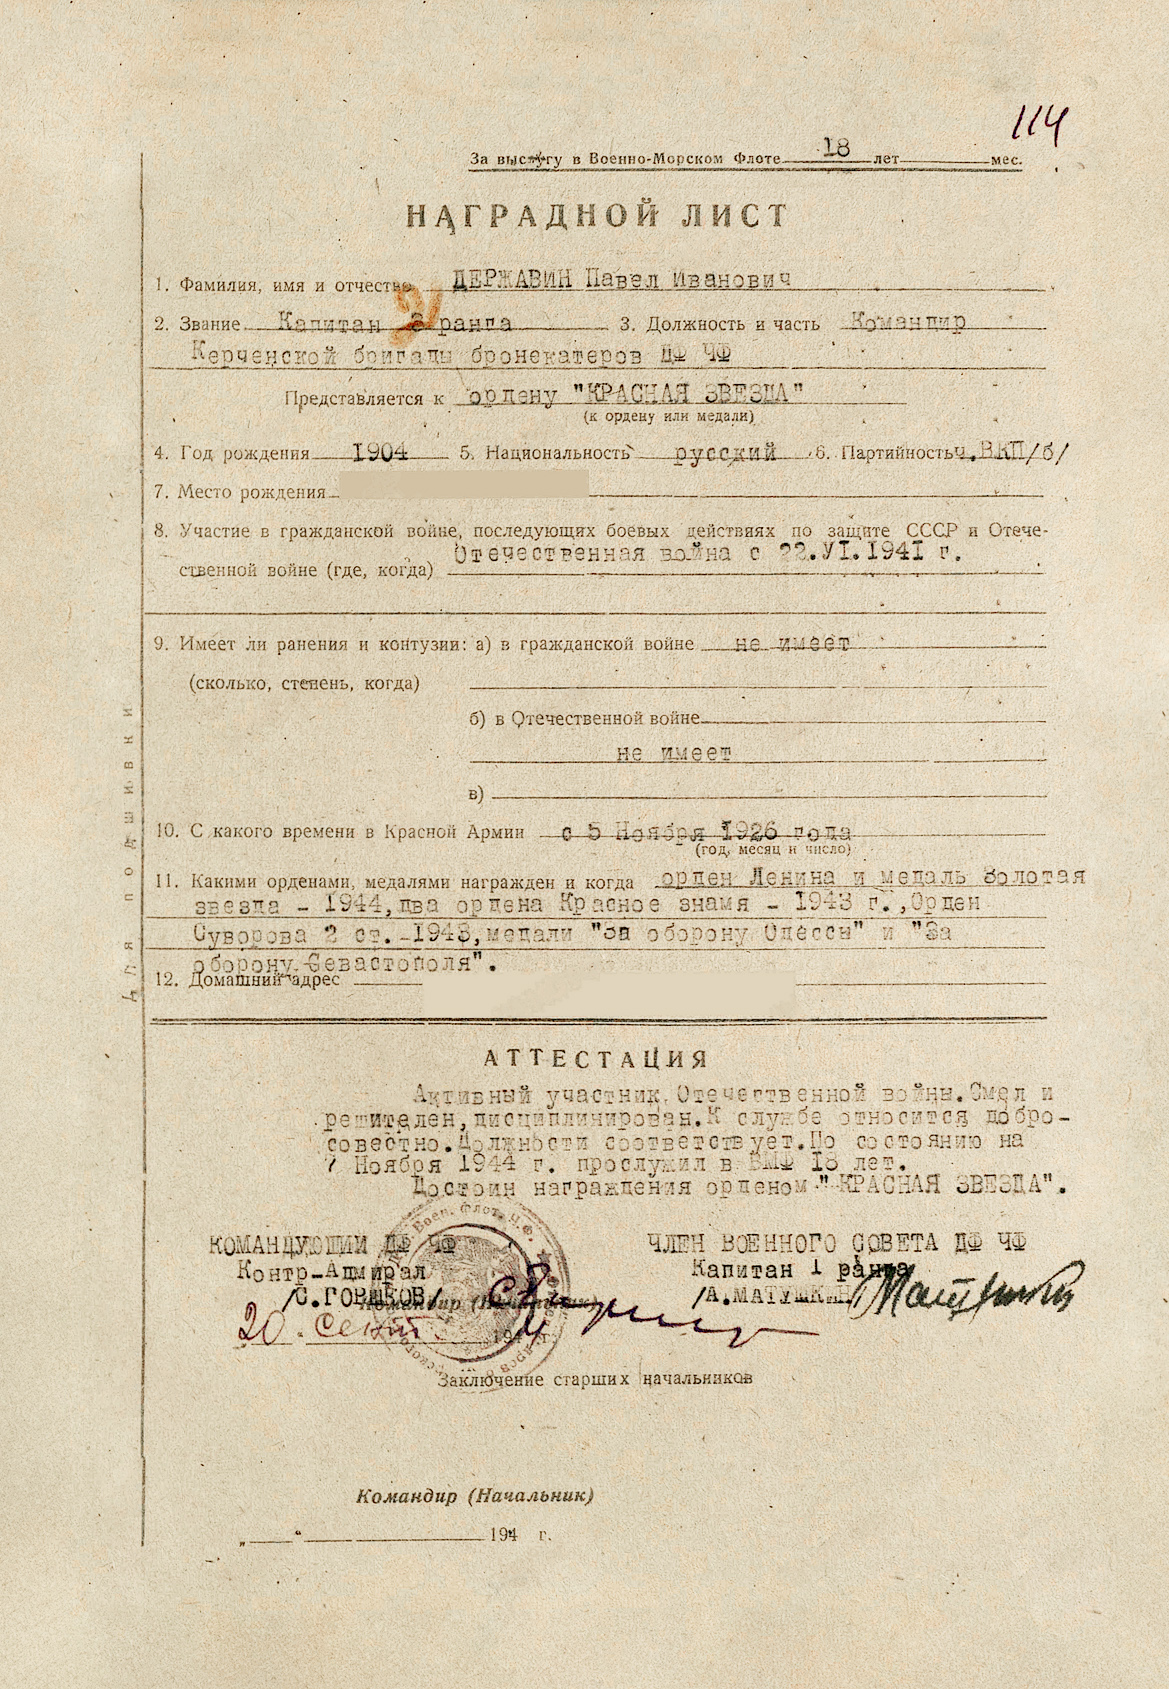 114
За выслугу в Военно-Морском Флоте 18 лет мес.
НАГРАДНОЙ ЛИСТ
1. Фамилия, имя и отчество ДЕРЖАВИН Павел Иванович
2. Звание Капитан 2 ранга 3. Должность и часть Командир
Керченской бригады бронекатеров ДФ ЧФ
Представляется к ордену "КРАСНАЯ ЗВЕЗДА"
(к ордену или медали)
4. Год рождения 1904 5. Национальность русский 6. Партийность ч.ВКП/б/
7. Место рождения
8. Участие в гражданской войне, последующих боевых действиях по защите СССР и Отече-
Отечественная война с 22.VI.1941 г.
ственной войне (где, когда)
9. Имеет ли ранения и контузии: а) в гражданской войне не имеет
(сколько, степень, когда)
б) в Отечественной войне
не имеет
в)
10. С какого времени в Красной Армии с 5 Ноября 1926 года
(год, месяц и число)
11. Какими орденами, медалями награжден и когда орден Ленина и медаль Золотая
звезда - 1944, два ордена Красное знамя - 1943 г.,Орден
Суворова 2 ст.-1943, медали "За оборону Одессы" и "За
оборону Севастополя".
12. Домашний адрес
Для подшивки
АТТЕСТАЦИЯ
Активный участник Отечественной войны. Смел и
решителен, дисциплинирован. К службе относится добро-
совестно. Должности соответствует. По состоянию на
7 Ноября 1944 г. прослужил в ВМФ 18 лет.
Достоин награждения орденом "КРАСНАЯ ЗВЕЗДА".
Воен. Флот. Ч.Ф.
КОМАНДУЮЩИЙ ДФ ЧФ ЧЛЕН ВОЕННОГО СОВЕТА ДФ ЧФ
Контр-Адмирал Капитан 1 ранга
/С.ГОРШКОВ/ Командир (Начальник) /А.МАТУШКИН/
20 сент. 194 г.
Заключение старших начальников
Командир (Начальник)
„ “ 194 г.